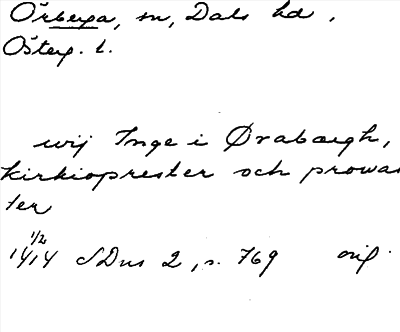 Örberga, sn, Dals hd,
Österg. l.
wij Inge i Ørabærgh,
kirkioprester och prowas
ter
1/2
1414 SDns 2, s. 769 orig.